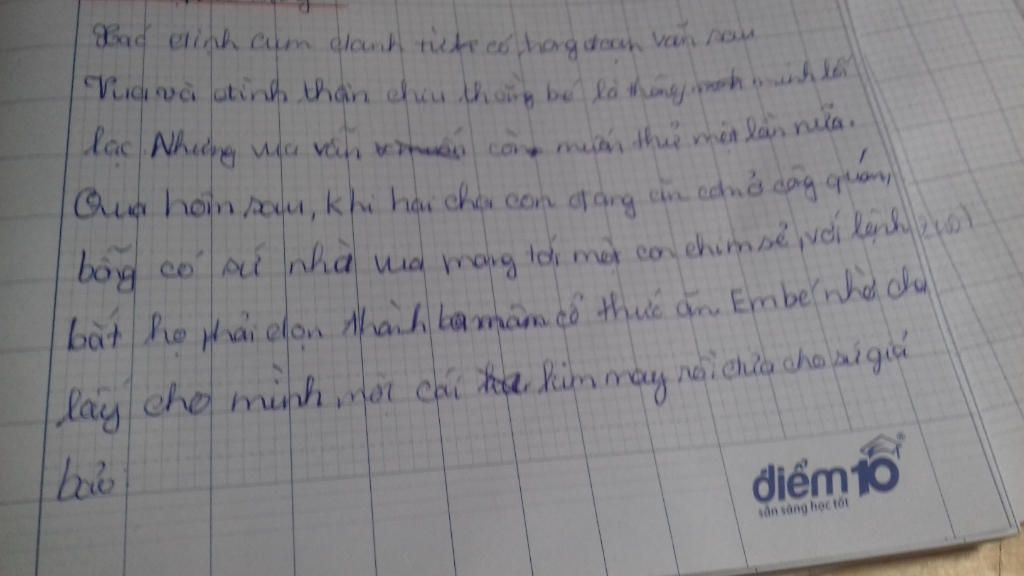 Xác định cụm danh từ có trong đoạn văn sau
Vua và đình thần chịu thằng bé là thông minh lỗi
lạc. Nhưng vua vẫn còn muốn thử một lần nữa.
Qua hôm sau, khi hai cha con đang ăn cơm ở công quán,
bỗng có sứ nhà vua mang tới một con chim sẻ, với lệnh
bắt họ phải dọn thành ba mâm cỗ thức ăn. Em bé nhờ cha
lấy cho mình một cái kim may rồi đưa cho sứ giả
bảo
điểm10
sẵn sàng học tốt